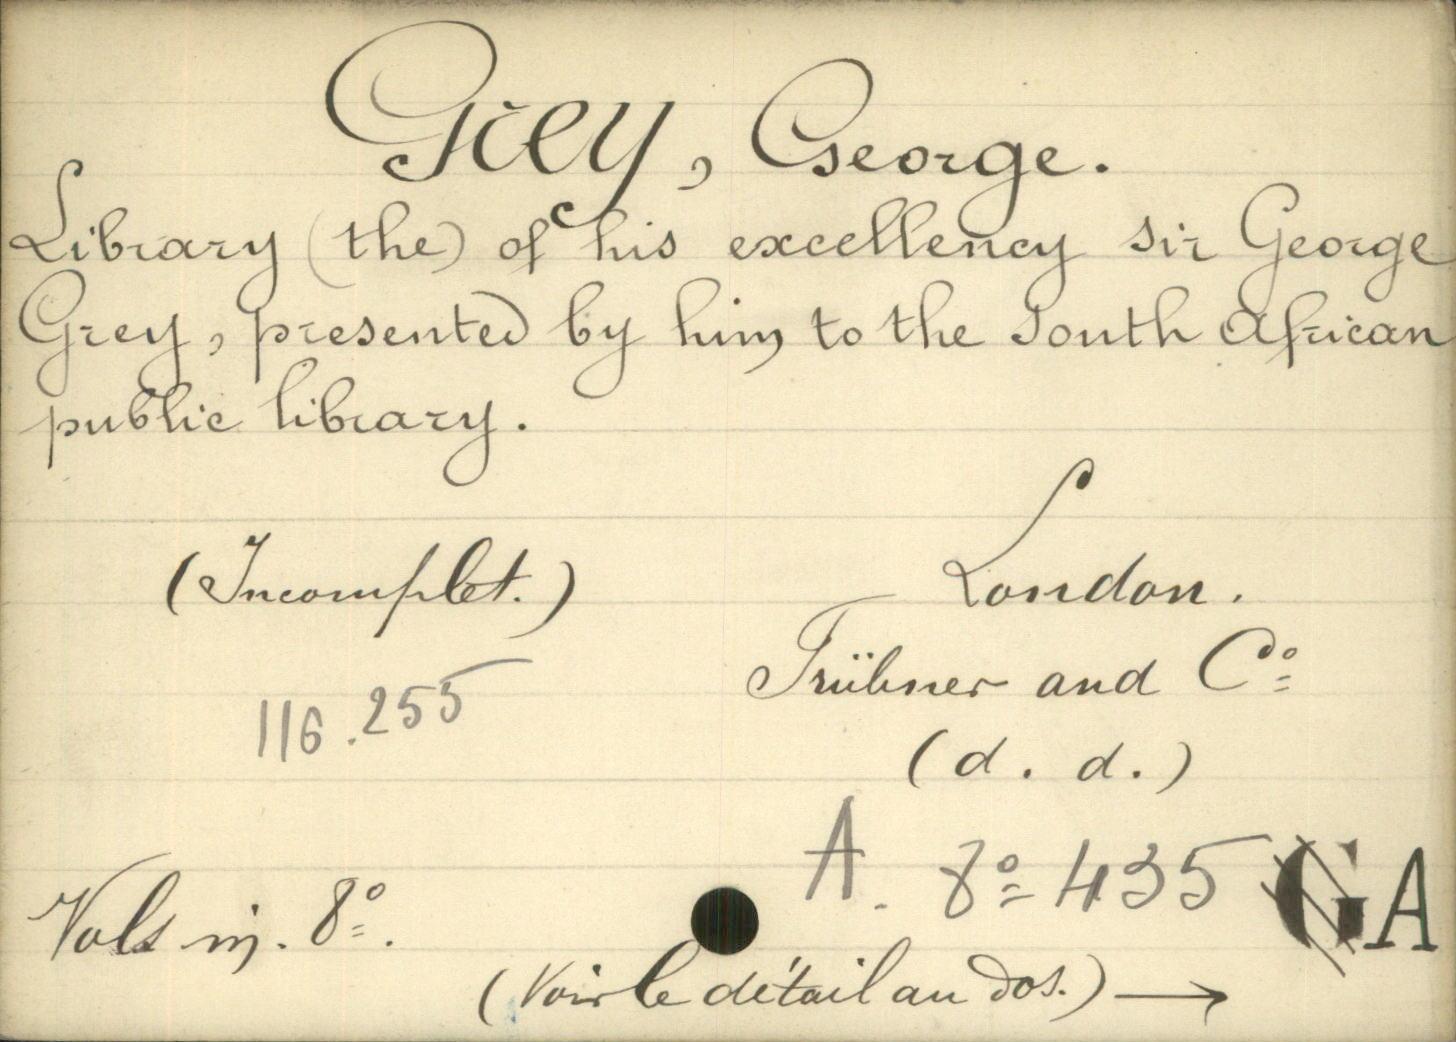 Grey, George.
Library (the) of his excellency sir George
Grey, presented by him to the South African
public library.
(Incomplet.)
London.
Trübner and Cº
(d. d.)
116.255
A. 8º 435 GA
Vols in. 8º.
(Voir le détail au dos.) →